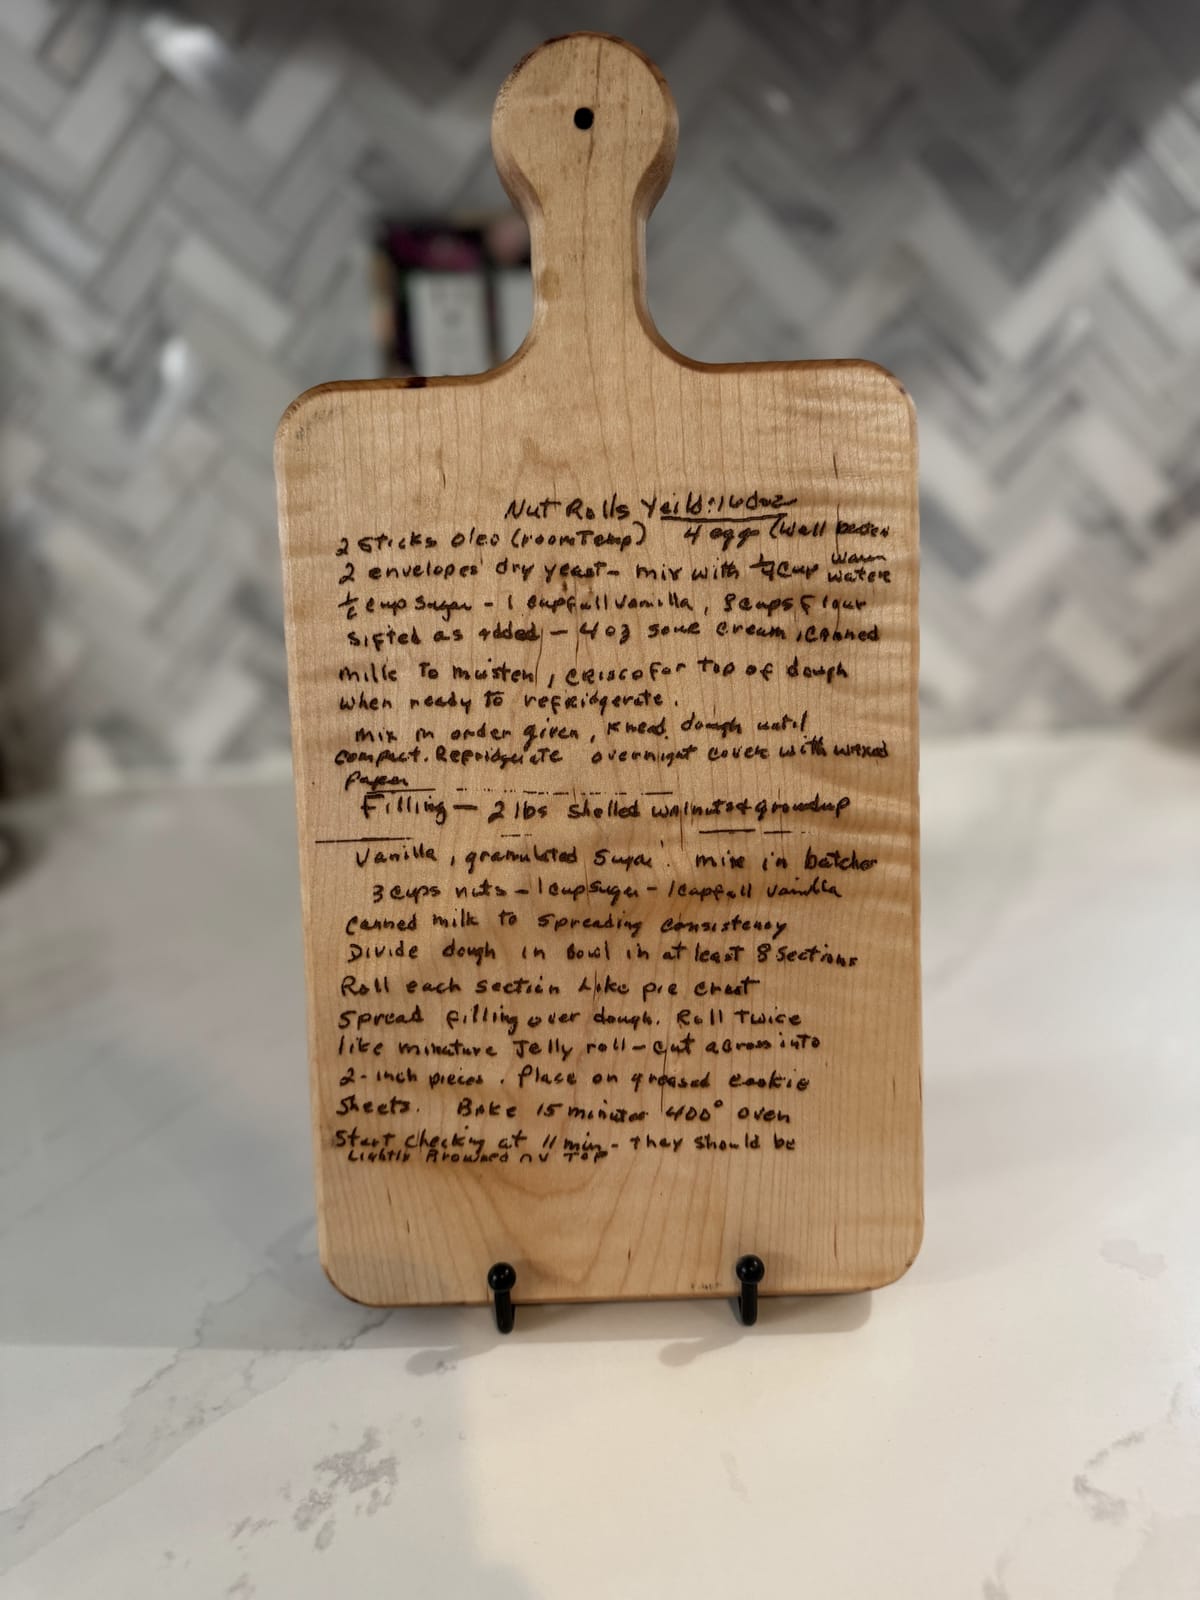 Nut Rolls Yeild: 16 doz
2 Sticks Oleo (room Temp) 4 eggs (well beaten
2 envelopes dry yeast - mix with 1/4 cup warm water
cup sugar - 1 capfull vanilla, 8 cups flour
sifted as added - 4 oz sour cream, canned
milk To moisten, crisco for top of dough
when ready to refridgerate.
mix in order given, knead dough until
compact. Refridgerate overnight cover with waxed
paper
Filling - 2 lbs shelled walnuts ground up
Vanilla, granulated sugar. mix in batches
3 cups nuts - 1 cup sugar - 1 capfull vanilla
Canned milk to spreading consistency
Divide dough in bowl in at least 8 sections
Roll each section like pie crust
Spread filling over dough. Roll Twice
like minature Jelly roll - cut across into
2-inch pieces. Place on greased cookie
Sheets. Bake 15 minutes 400° oven
Start checking at 11 min - They should be
Lightly Browned on Top